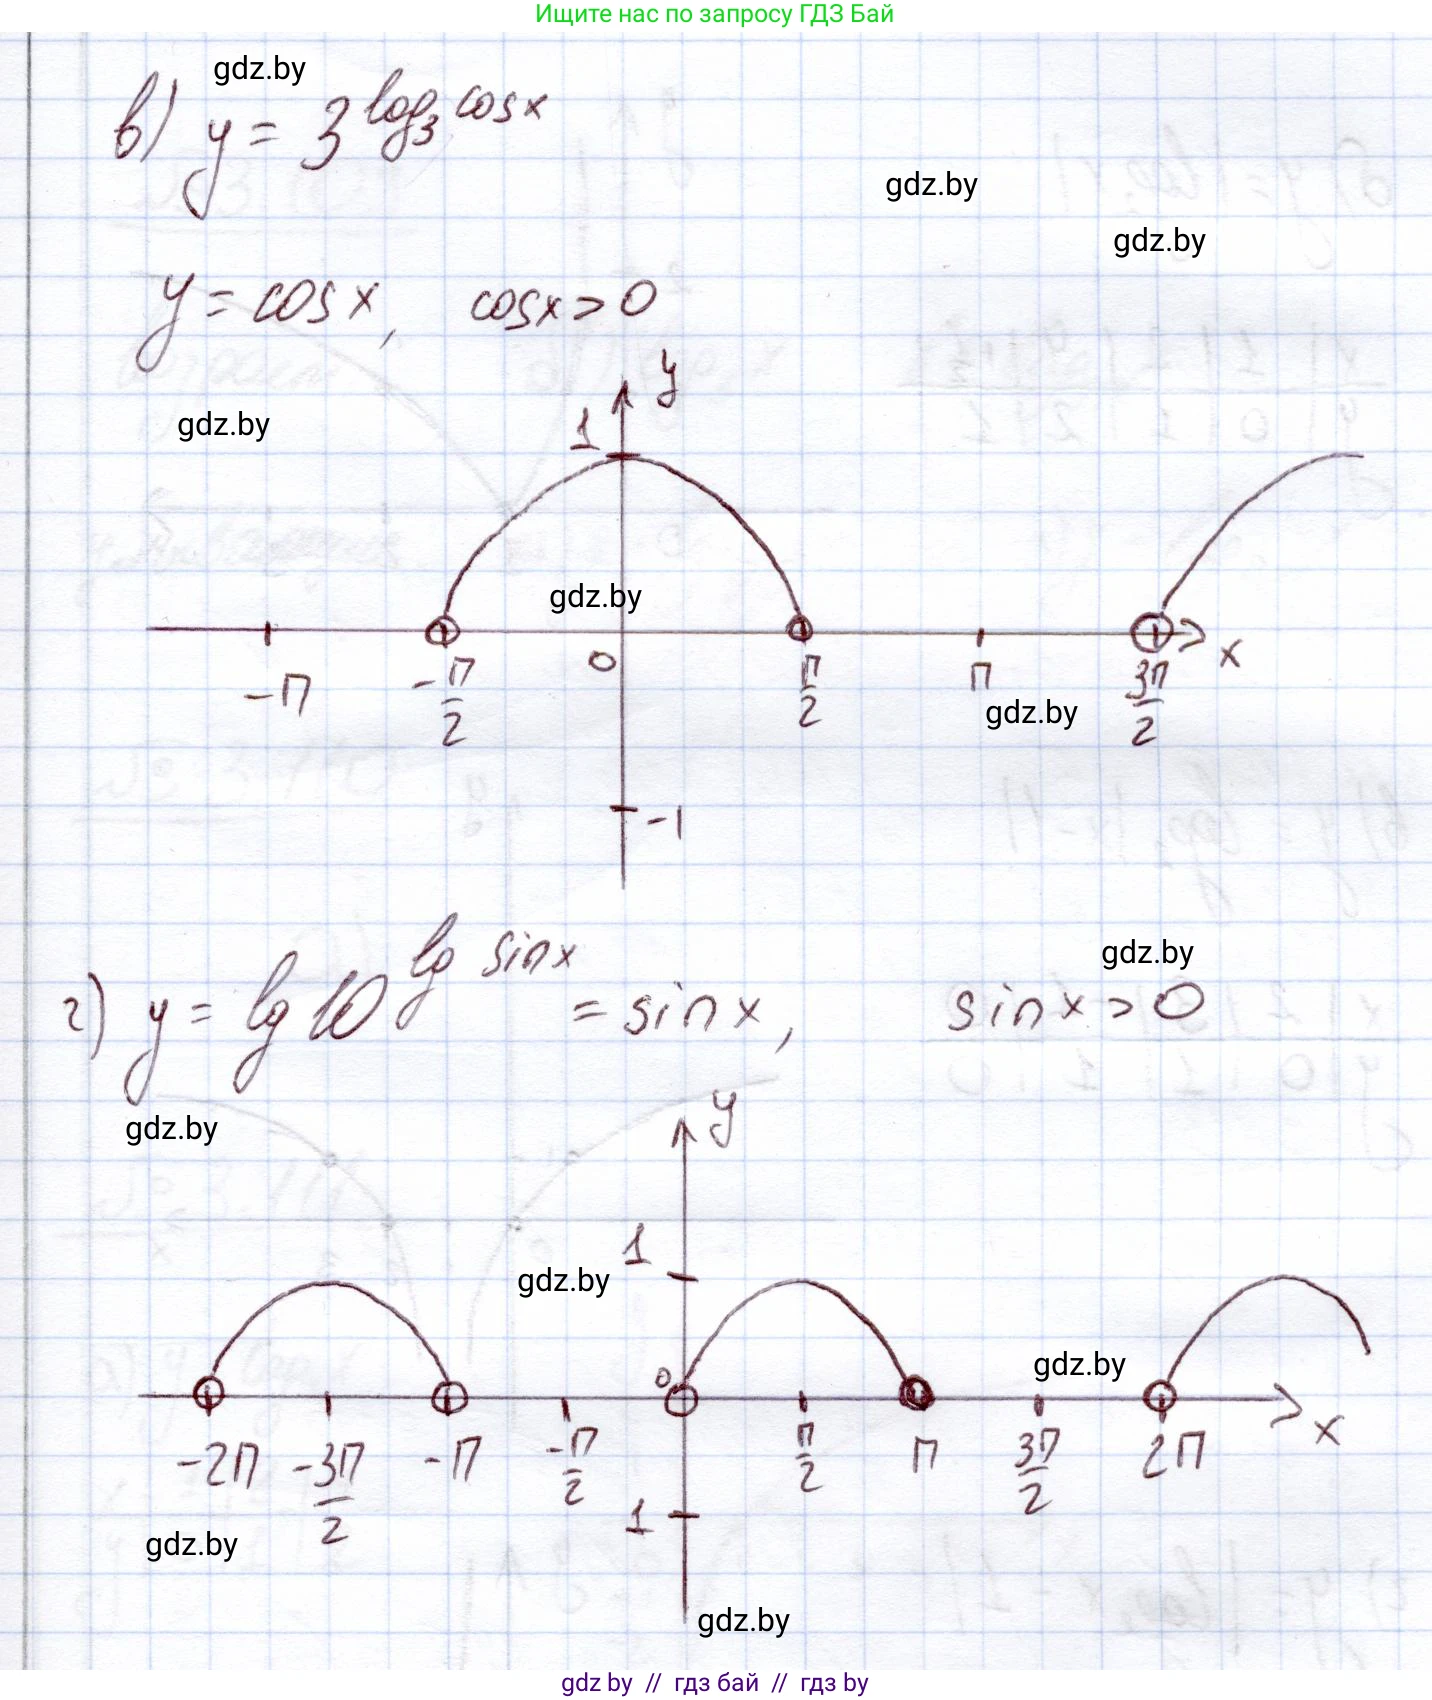 Ищите нас по запросу ГДЗ Бай
gdz.by
в) y = 3^{log_3 cosx}
gdz.by
gdz.by
y = cosx, cosx > 0
y
gdz.by
1
gdz.by
-π -π/2 0 π/2 π 3π/2 x
gdz.by
-1
gdz.by
г) y = lg10^{lg sinx} = sinx, sinx > 0
gdz.by
y
1
gdz.by
gdz.by
0
-2π -3π/2 -π -π/2 π/2 π 3π/2 2π x
1
gdz.by
gdz.by
gdz by // гдз бай // гдз by